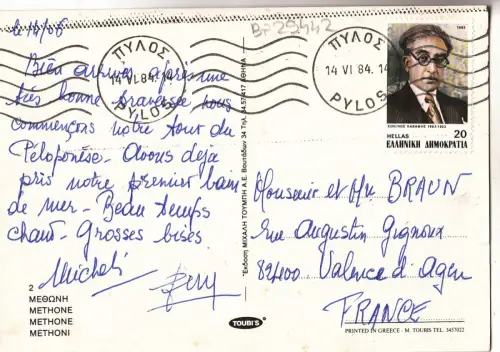 le 13/06
Bien arrivés après une
très bonne traversée nous
commençons notre tour du
Péloponèse. Avons deja
pris notre premier bain
de mer - Beau temps
chaud - Grosses bises
Michel
2
ΜΕΘΩΝΗ
METHONE
METHONE
METHONI
Έκδοση ΜΙΧΑΛΗ ΤΟΥΜΠΗ Α.Ε. Βουτάδων 34 Τηλ. 34.57.417 ΑΘΗΝΑ
TOUBI'S
BF 29442
ΠΥΛΟΣ
14 VI 84. 14
PYLOS
ΠΥΛΟΣ
14 VI 84. 14
PYLOS
1983
ΚΩΝ/ΝΟΣ ΚΑΒΑΦΗΣ 1863-1933
HELLAS 20
ΕΛΛΗΝΙΚΗ ΔΗΜΟΚΡΑΤΙΑ
Monsieur et Me BRAUN
rue Augustin Gignoux
82400 Valence d'Agen
FRANCE
PRINTED IN GREECE - M. TOUBIS TEL. 3457022